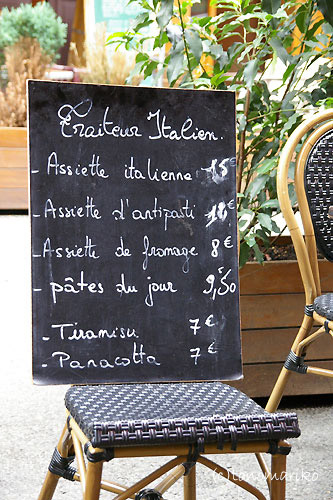 Traiteur Italien.
- Assiette italienne 15€
- Assiette d'antipasti €
- Assiette de fromage 8€
- pâtes du jour 9,50
- Tiramisu 7€
- Panacotta 7€